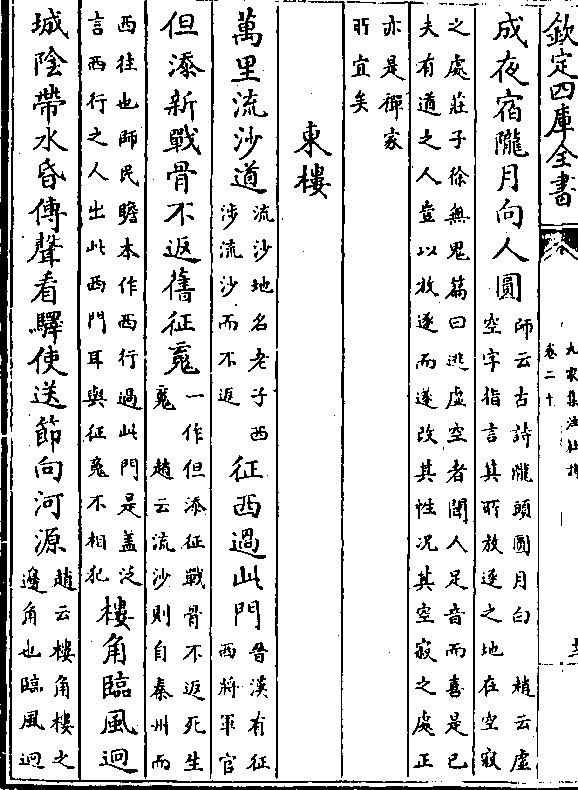 欽定四庫全書
九家集注杜詩
卷二十
成夜宿隴月向人圓師云古詩隴頭圓月白 趙云虛
空字指言其所放逐之地在空寂
之處莊子徐無鬼篇曰逃虛空者聞人足音而喜是已
夫有道之人豈以放逐而遂改其性況其空寂之處正
亦是禪家
所宜矣
東樓
萬里流沙道流沙地名老子西
涉流沙而不返征西過此門晉漢有征
西將軍官
但添新戰骨不返舊征䰟一作但添征戰骨不返死生
䰟 趙云流沙則自秦州而
西往也師民瞻本作西行過此門是蓋泛
言西行之人出此西門耳與征䰟不相犯樓角臨風迥
城陰帶水昏傳聲看驛使送節向河源趙云樓角樓之
邊角也臨風迥